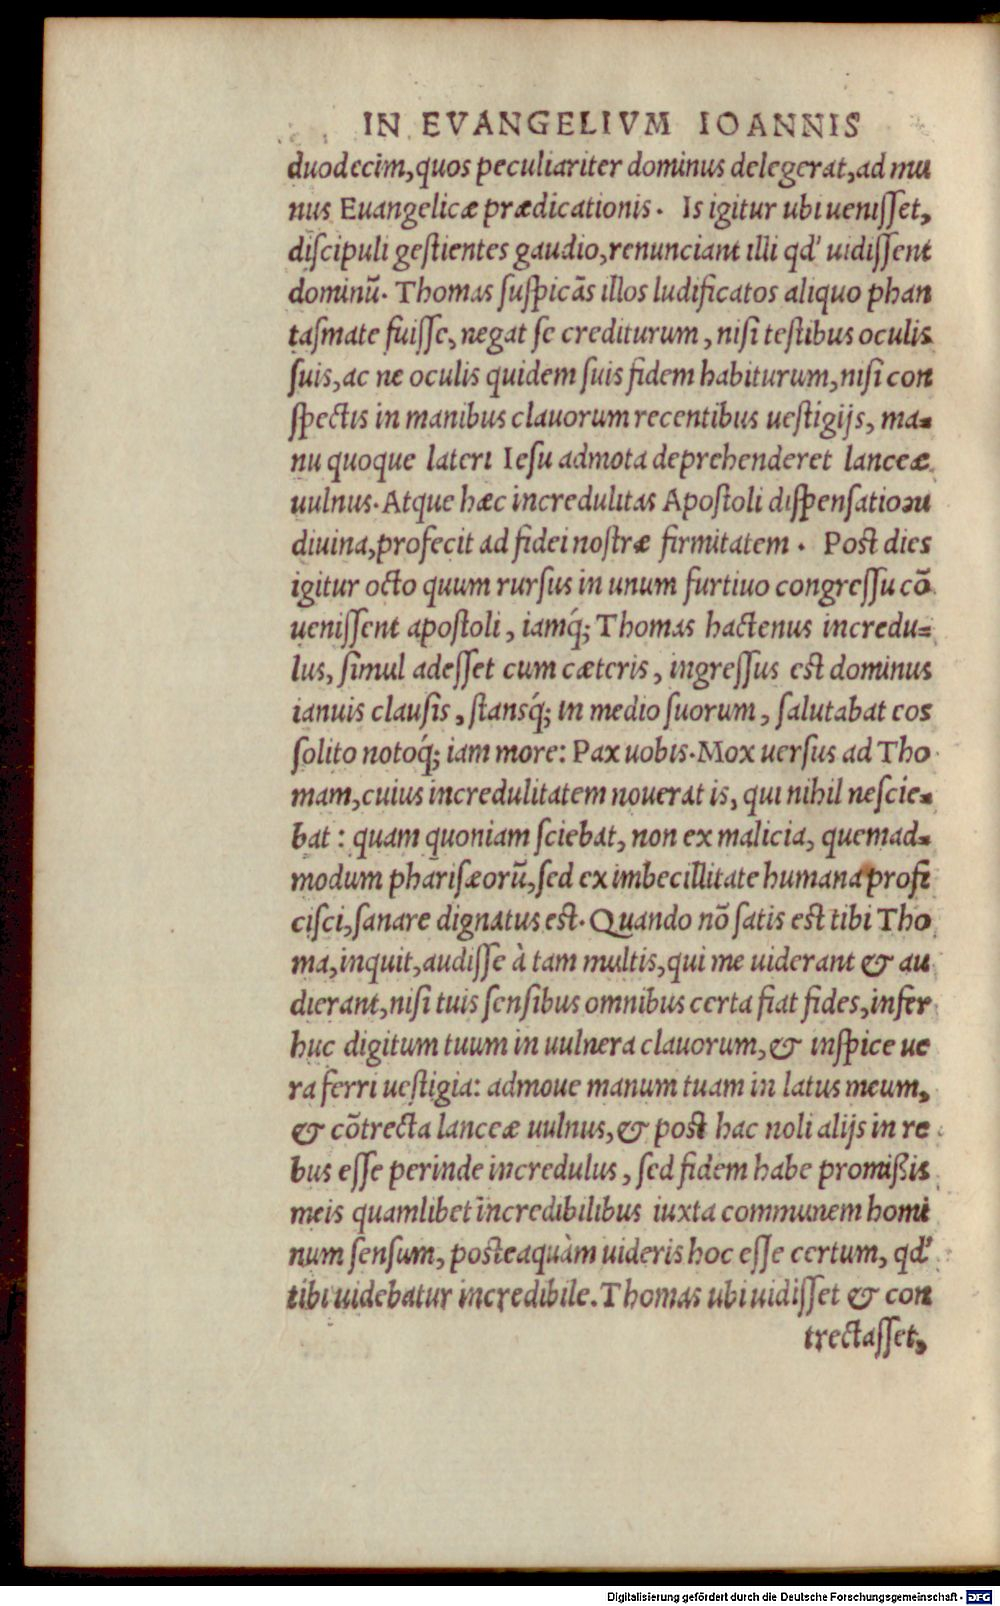 IN EVANGELIVM IOANNIS
duodecim, quos peculiariter dominus delegerat, ad mu
nus Euangelicæ prædicationis. Is igitur ubi uenisset,
discipuli gestientes gaudio, renunciant illi qd' uidissent
dominũ. Thomas suspicãs illos ludificatos aliquo phan
tasmate fuisse, negat se crediturum, nisi testibus oculis
suis, ac ne oculis quidem suis fidem habiturum, nisi con
spectis in manibus clauorum recentibus uestigijs, ma-
nu quoque lateri Iesu admota deprehenderet lanceæ
uulnus. Atque hæc incredulitas Apostoli dispensatioɔu
diuina, profecit ad fidei nostræ firmitatem. Post dies
igitur octo quum rursus in unum furtiuo congressu cõ
uenissent apostoli, iamq́; Thomas hactenus incredu-
lus, simul adesset cum cæteris, ingressus est dominus
ianuis clausis, stansq́; in medio suorum, salutabat eos
solito notoq́; iam more: Pax uobis. Mox uersus ad Tho
mam, cuius incredulitatem nouerat is, qui nihil nescie-
bat: quam quoniam sciebat, non ex malicia, quemad-
modum pharisæorũ, sed ex imbecillitate humana profi
cisci, sanare dignatus est. Quando nõ satis est tibi Tho
ma, inquit, audisse à tam multis, qui me uiderant & au
dierant, nisi tuis sensibus omnibus certa fiat fides, infer
huc digitum tuum in uulnera clauorum, & inspice ue
ra ferri uestigia: admoue manum tuam in latus meum,
& cõtrecta lanceæ uulnus, & post hac noli alijs in re
bus esse perinde incredulus, sed fidem habe promißis
meis quamlibet incredibilibus iuxta communem homi
num sensum, posteaquàm uideris hoc esse certum, qd'
tibi uidebatur incredibile. Thomas ubi uidisset & con
trectasset,
Digitalisierung gefördert durch die Deutsche Forschungsgemeinschaft - DFG